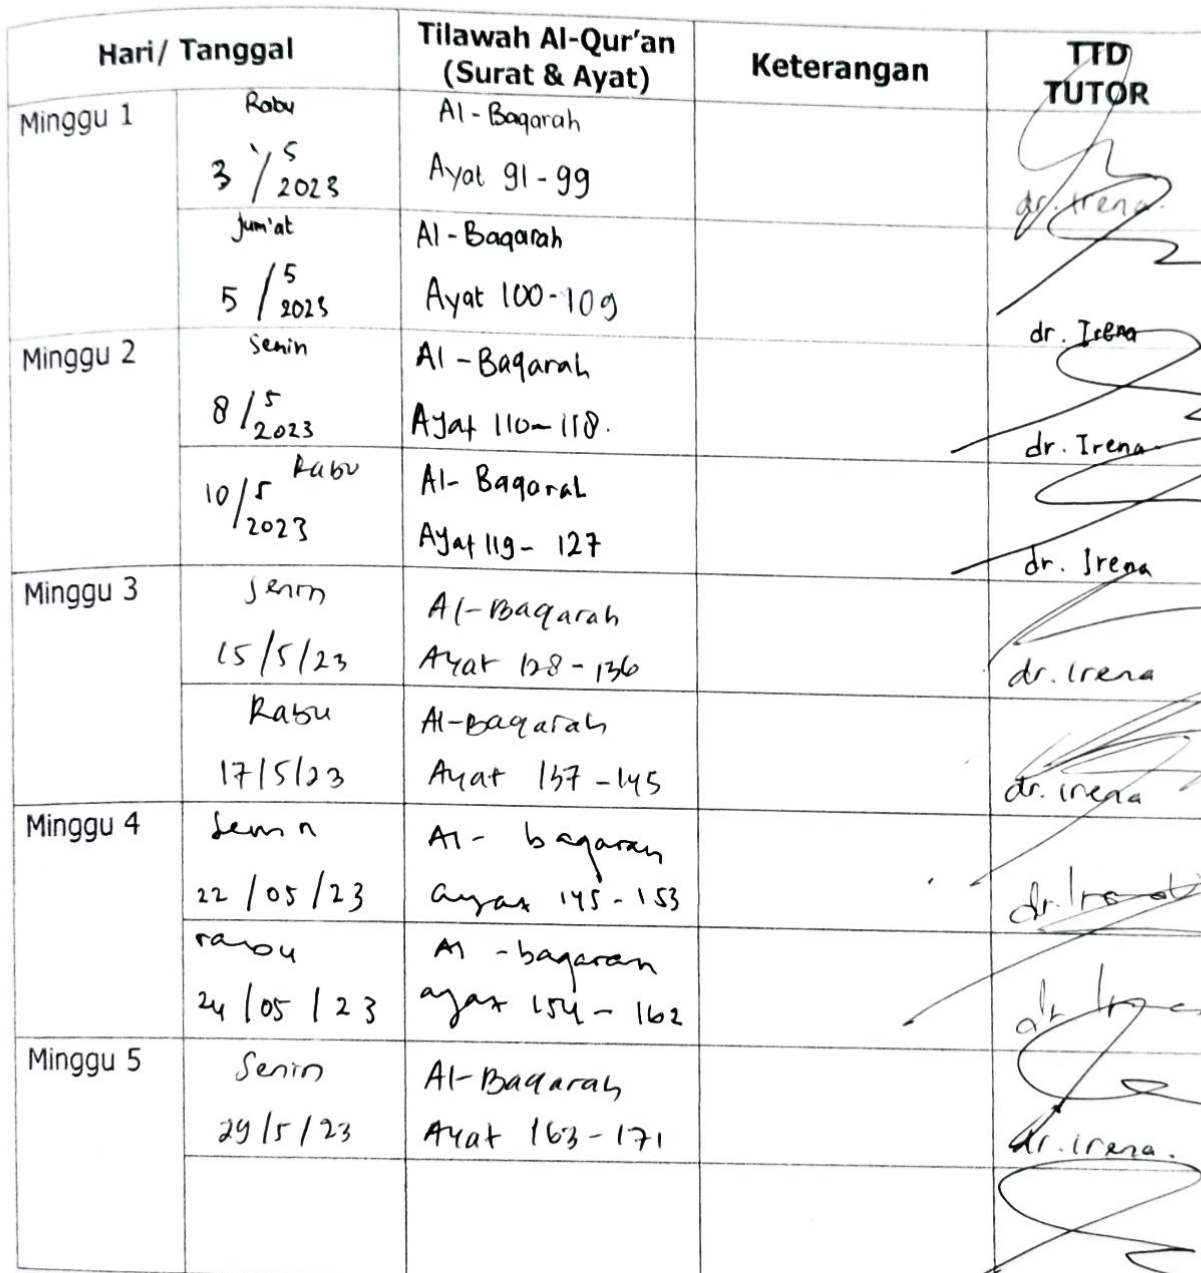 Hari/ Tanggal
Tilawah Al-Qur'an
(Surat & Ayat)
Keterangan
TTD
TUTOR
Minggu 1
Rabu
3 / 5
2023
Al-Baqarah
Ayat 91-99
dr. Irena.
Jum'at
5 / 5
2023
Al-Baqarah
Ayat 100-109
dr. Irena
Minggu 2
Senin
8 / 5
2023
Al-Baqarah
Ayat 110-118.
dr. Irena
Rabu
10/5
2023
Al-Baqarah
Ayat 119- 127
dr. Irena
Minggu 3
Senin
15/5/23
Al-Baqarah
Ayat 128-136
dr. Irena
Rabu
17/5/23
Al-Baqarah
Ayat 137-145
dr. irena
Minggu 4
Senin
22/05/23
Al- baqarah
ayat 145-153
dr. Irena
rabu
24/05/23
Al-baqarah
ayat 154-162
dr
Minggu 5
Senin
29/5/23
Al-Baqarah
Ayat 163-171
dr. irena.